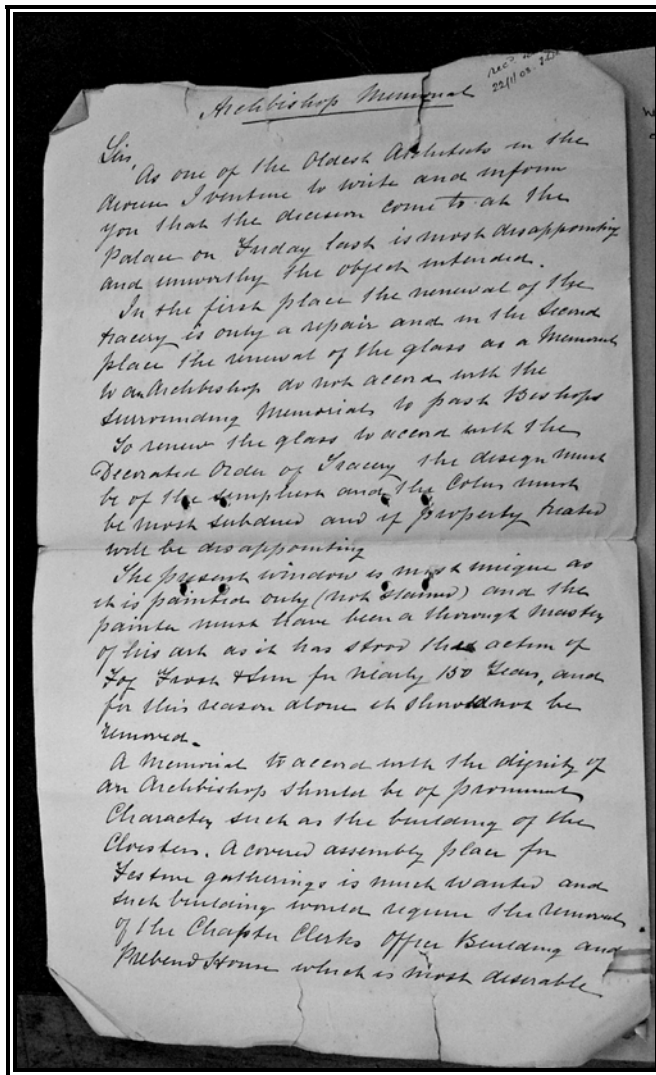 Recd
22/1/03.
Archbishop Memorial
Sir,
As one of the Oldest Architects in the
diocese I venture to write and inform
you that the decision come to at the
Palace on Friday last is most disappointing
and unworthy the object intended.
In the first place the renewal of the
tracery is only a repair and in the Second
place the renewal of the glass as a Memorial
to an Archbishop do not accord with the
surrounding Memorials to past Bishops
To renew the glass to accord with the
Decorated Order of Tracery the design must
be of the simplest and the Colour must
be most subdued and if properly treated
will be disappointing
The present window is most unique as
it is painted only (not stained) and the
painter must have been a thorough master
of his art as it has stood the action of
Fog Frost & Sun for nearly 130 Years, and
for this reason alone it should not be
removed.
A Memorial to accord with the dignity of
an Archbishop should be of prominent
Character such as the building of the
Cloisters. A covered assembly place for
Festive gatherings is much wanted and
such building would require the removal
of the Chapter Clerks Office Building and
Prebend House which is most desirable